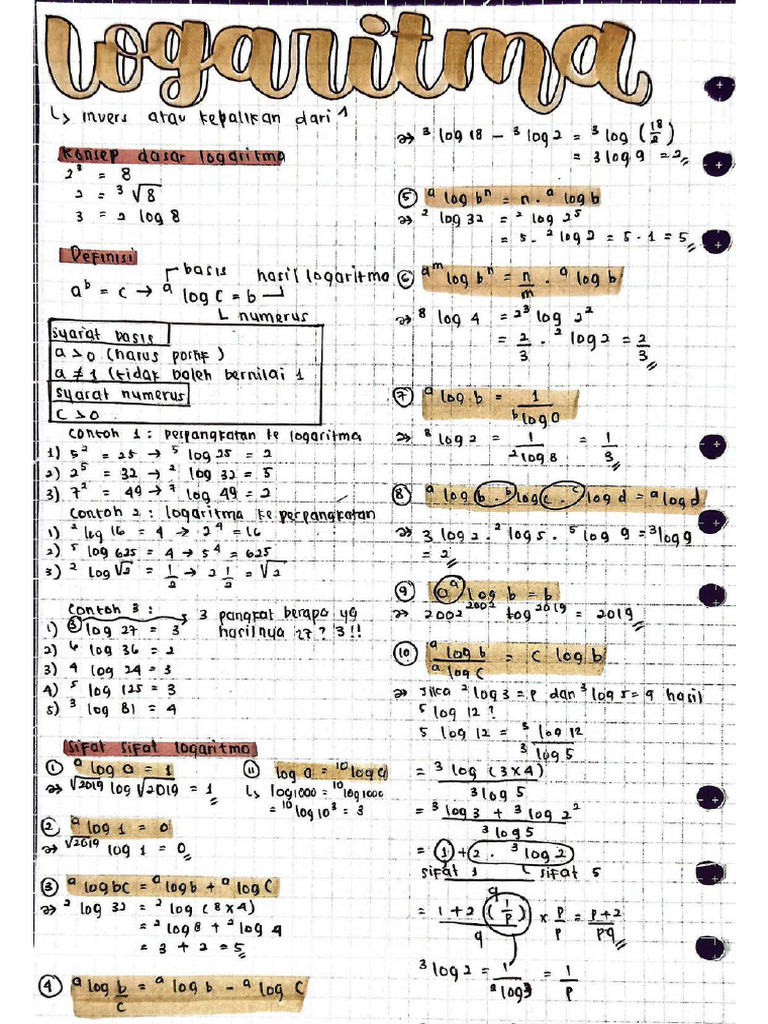 logaritma
↳ invers atau kebalikan dari ↑
Konsep dasar logaritma
2³ = 8
2 = ³√8
3 = 2 log 8
Definisi
basis
hasil logaritma
aᵇ = c → ᵃlog c = b
numerus
syarat basis
a > 0 (harus positif)
a ≠ 1 (tidak boleh bernilai 1
syarat numerus
c > 0
contoh 1 : perpangkatan ke logaritma
1) 5² = 25 → ⁵log 25 = 2
2) 2⁵ = 32 → ²log 32 = 5
3) 7² = 49 → ⁷log 49 = 2
contoh 2 : logaritma ke perpangkatan
1) ²log 16 = 4 → 2⁴ = 16
2) ⁵log 625 = 4 → 5⁴ = 625
3) ²log √2 = 1/2 → 2 1/2 = √2
contoh 3 :
3 pangkat berapa yg
hasilnya 27 ? 3 !!
1) ³log 27 = 3
2) ⁶log 36 = 2
3) ⁴log 24 = 3
4) ⁵log 125 = 3
5) ³log 81 = 4
Sifat sifat logaritma
① ᵃlog a = 1
⇒ √2019 log √2019 = 1
⑪ log a = ¹⁰log a
↳ log 1000 = ¹⁰log 1000
= ¹⁰log 10³ = 3
② ᵃlog 1 = 0
⇒ √2019 log 1 = 0
③ ᵃlog bc = ᵃlog b + ᵃlog c
⇒ ²log 32 = ²log (8 x 4)
= ²log 8 + ²log 4
= 3 + 2 = 5
④ ᵃlog b/c = ᵃlog b - ᵃlog c
⇒ ³log 18 - ³log 2 = ³log (18/2)
= 3 log 9 = 2
⑤ ᵃlog bⁿ = n . ᵃlog b
⇒ ²log 32 = ²log 2⁵
= 5 . ²log 2 = 5 . 1 = 5
⑥ ᵃᵐ log bⁿ = n/m . ᵃlog b
⇒ ⁸log 4 = 2³ log 2²
= 2/3 . ²log 2 = 2/3
⑦ ᵃlog b = 1/ᵇlog a
⇒ ⁸log 2 = 1/²log 8 = 1/3
⑧ ᵃlog b . ᵇlog c . ᶜlog d = ᵃlog d
⇒ 3 log 2 . ²log 5 . ⁵log 9 = ³log 9
= 2
⑨ aᵃ log b = b
⇒ 2002²⁰⁰² log 2019 = 2019
⑩ ᵃlog b/ᵃlog c = c log b
⇒ Jika ²log 3 = p dan ³log 5 = q hasil
⁵log 12 ?
5 log 12 = ³log 12/³log 5
= ³log (3x4)/3 log 5
= ³log 3 + ³log 2²/³log 5
= 1 + 2 . ³log 2
sifat 1 sifat 5
q
= 1 + 2 (1/p)/q x p/p = p+2/pq
³log 2 = 1/²log 3 = 1/p